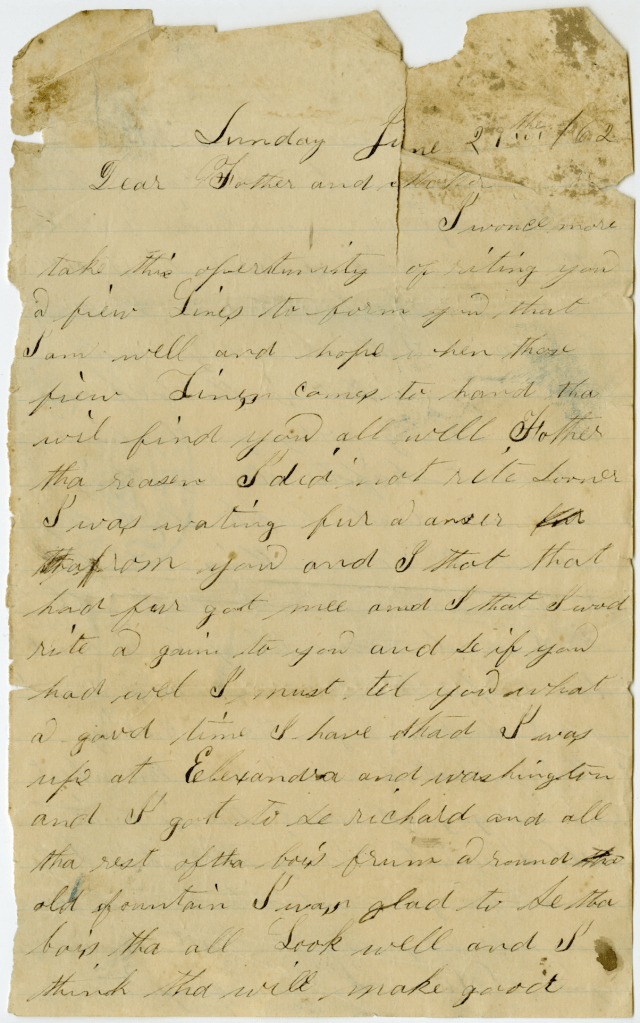 Sunday June 29the /62
Dear Father and Mother
I wonce more
take this opertunity of riting you
a fiew Lines to form you that
I am well and hope when thos
fiew Lines comes to hand tha
wil find you all well Father
tha reasen I did not rite sooner
I was wating fur a anser
from you and I that that
had fur got mee and I that I wod
rite a gain to you and se if you
had wel I must tel you what
a good time I have had I was
up at Elexandra and washington
and I got to se richard and all
tha rest of tha bois frum a round the
old fountain I was glad to se tha
bois tha all Look well and I
think tha will make good